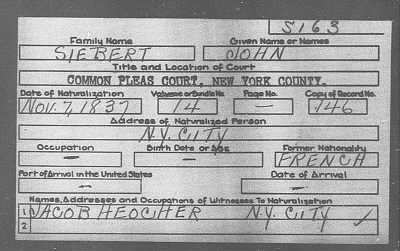 S163
Family Name Given Name or Names
SIEBERT JOHN
Title and Location of Court
COMMON PLEAS COURT, NEW YORK COUNTY.
Date of Naturalization Volume or Bundle No. Page No. Copy of Record No.
NOV. 7, 1837 14 — 146
Address of Naturalized Person
N.Y. CITY
Occupation Birth Date or Age Former Nationality
— — FRENCH
Port of Arrival in the United States Date of Arrival
— —
Names, Addresses and Occupations of Witnesses To Naturalization
1 JACOB HEOCHER N.Y. CITY ✓
2